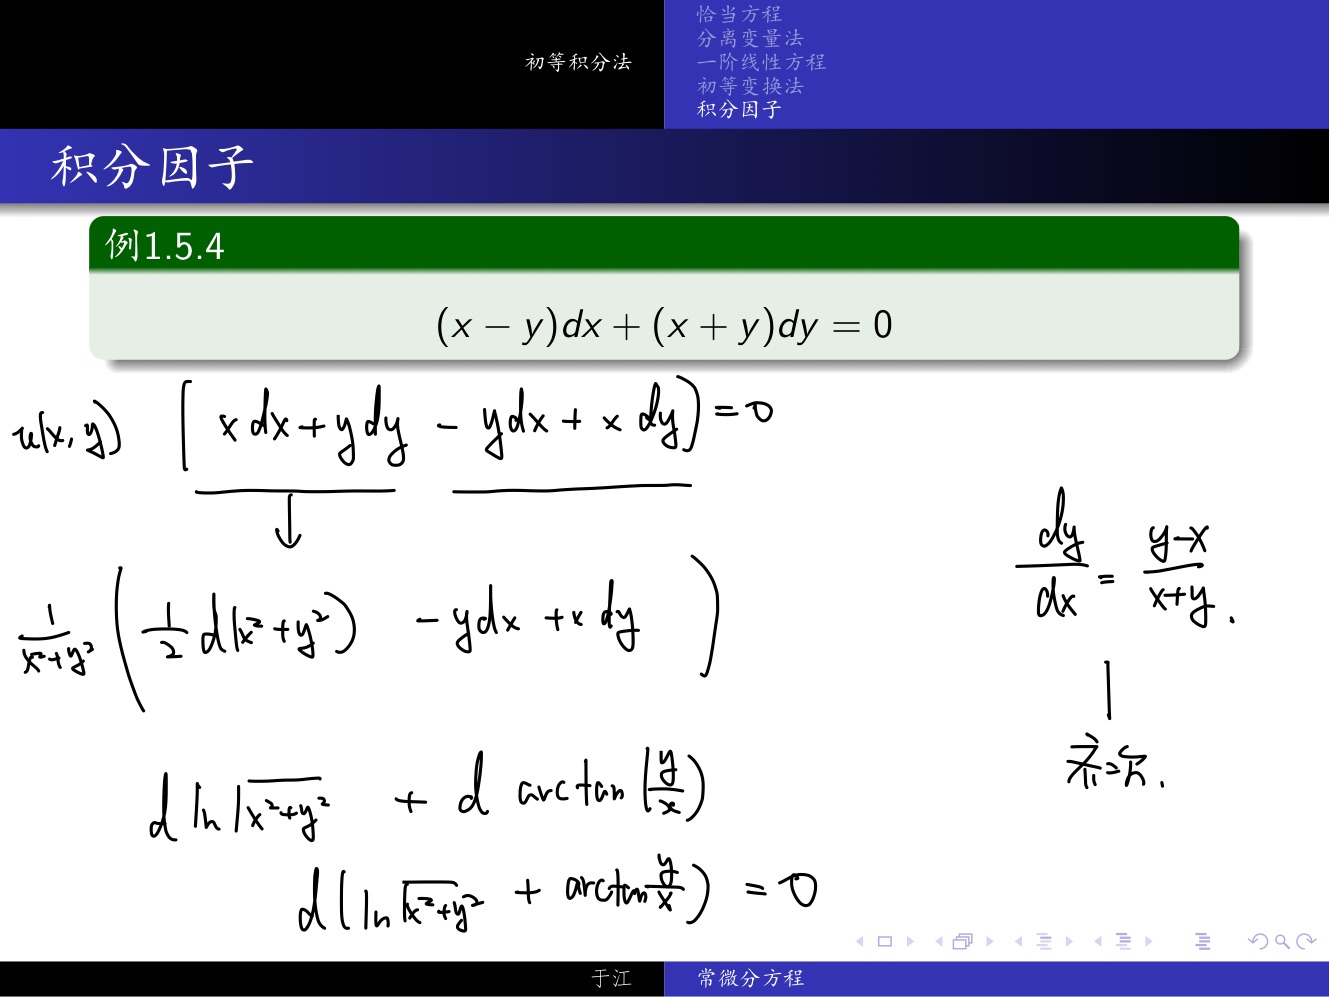 初等积分法
恰当方程
分离变量法
一阶线性方程
初等变换法
积分因子
积分因子
例1.5.4
(x − y)dx + (x + y)dy = 0
u(x, y) [x dx + y dy − y dx + x dy) = 0
dy/dx = y−x/x+y.
1/x²+y² (1/2 d(x²+y²) − y dx + x dy)
齐次.
d ln √x²+y² + d arctan (y/x)
d(ln √x²+y² + arctan y/x) = 0
于江
常微分方程